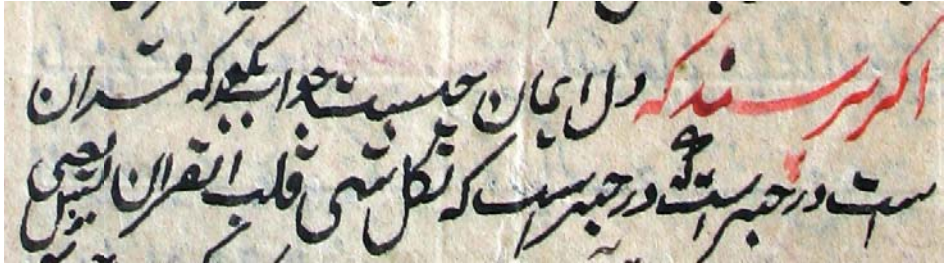 اکر پرسند که دل ایمان چیست جواب بکو که قران
است در خبر است در خبر است که لکل شی قلب القران یعنی